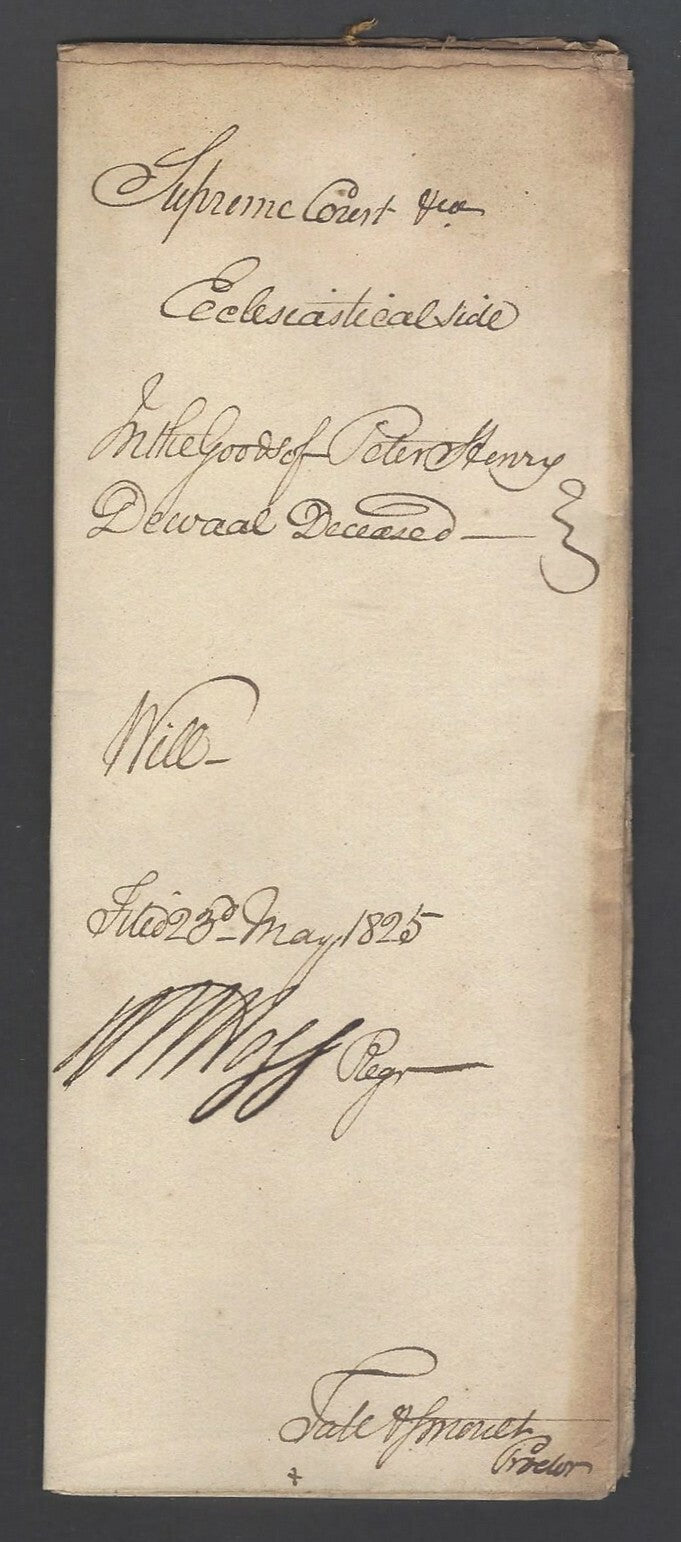 Supreme Court &ca
Ecclesiastical side
In the Goods of Peter Henry
Dewaal Deceased —
Will —
Filed 23d May 1825
Regr
Proctor